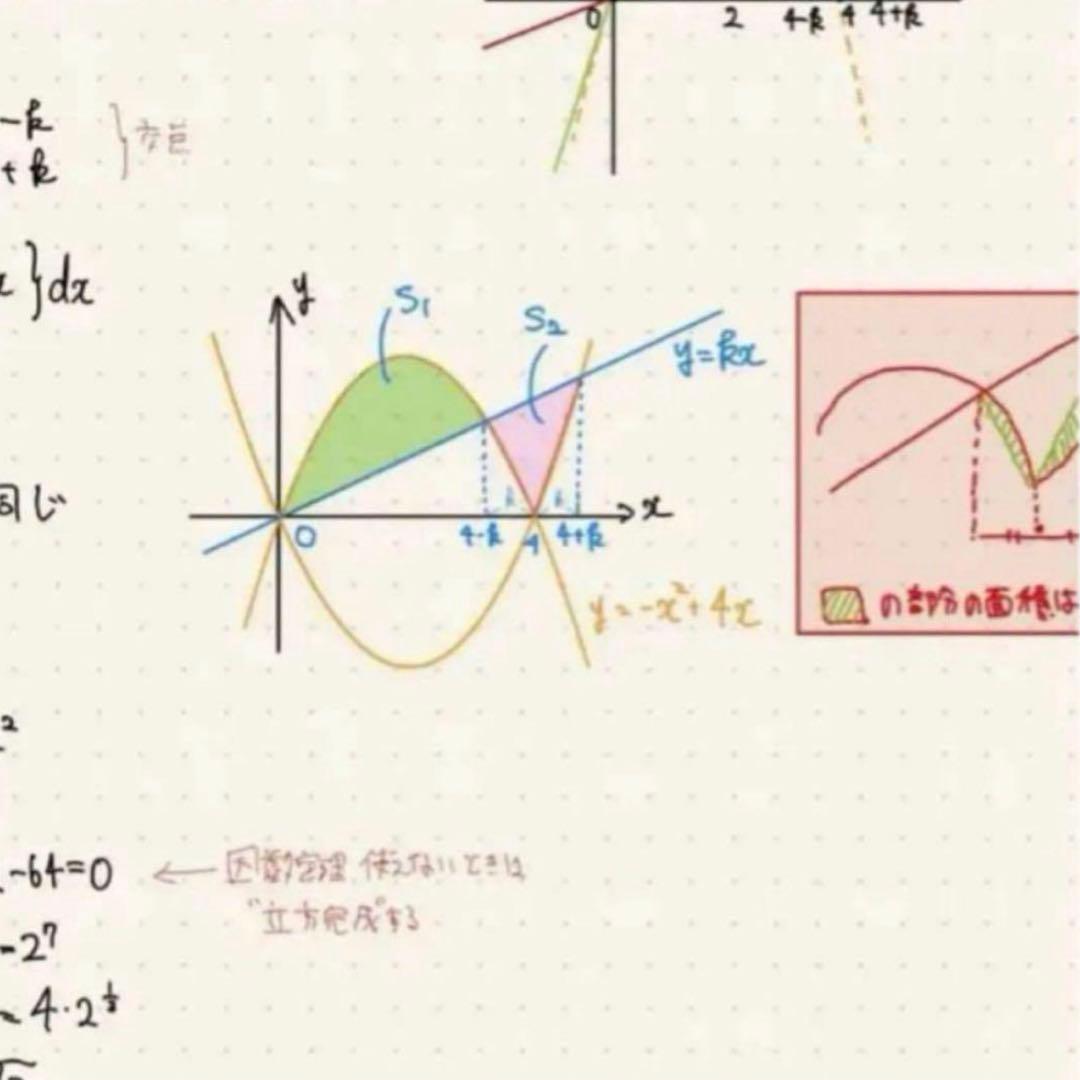 0 2 4-k 4 4+k
-k
+k
交点
x}dx
y
S₁
S₂
y=kx
同じ
0 4-k 4 4+k x
k k
y=-x²+4x
の部分の面積は
2
-64=0 ← 因数定理 使えないときは
"立方完成"する
-2⁷
4・2^⅓